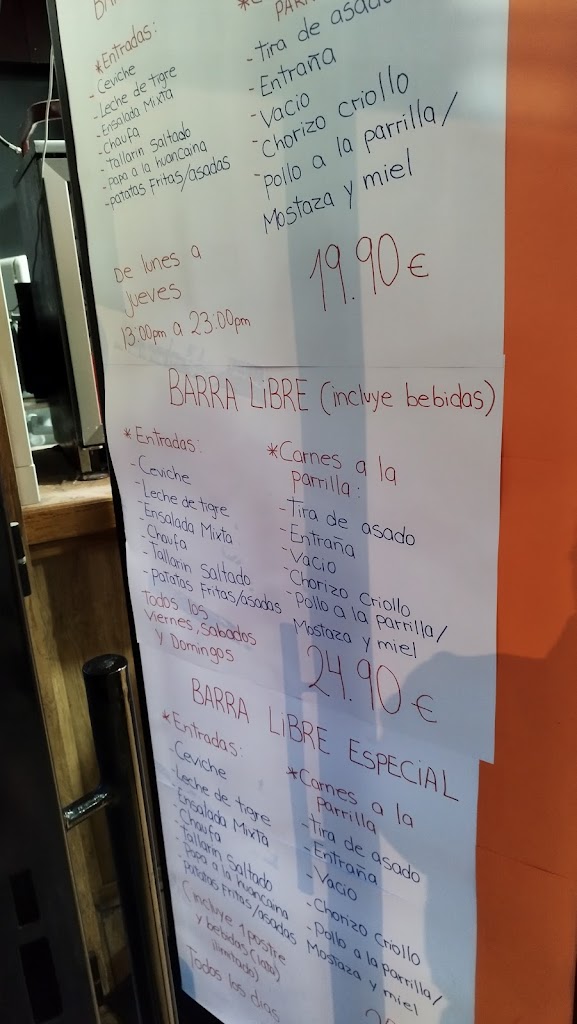 *Entradas:
- Ceviche
- Leche de tigre
- Ensalada Mixta
- Chaufa
- Tallarin Saltado
- Papa a la huancaina
- patatas Fritas/asadas
- Tira de asado
- Entraña
- Vacio
- Chorizo criollo
- pollo a la parrilla/
Mostaza y miel
De lunes a
jueves
13:00pm a 23:00pm
19.90 €
BARRA LIBRE (incluye bebidas)
*Entradas:
- Ceviche
- Leche de tigre
- Ensalada Mixta
- Chaufa
- Tallarin Saltado
- patatas Fritas/asadas
Todos los
viernes, Sabados
y Domingos
*Carnes a la
parrilla:
- Tira de asado
- Entraña
- Vacio
- Chorizo Criollo
- Pollo a la parrilla/
Mostaza y miel
24.90 €
BARRA LIBRE ESPECIAL
*Entradas:
- Ceviche
- Leche de tigre
- Ensalada Mixta
- Chaufa
- Tallarin Saltado
- Papa a la huancaina
- patatas Fritas/asadas
(incluye 1 postre
y bebidas (lata)
ilimitado)
Todos los dias
*Carnes a la
parrilla
- Tira de asado
- Entraña
- Vacio
- Chorizo Criollo
- Pollo a la parrilla/
Mostaza y miel